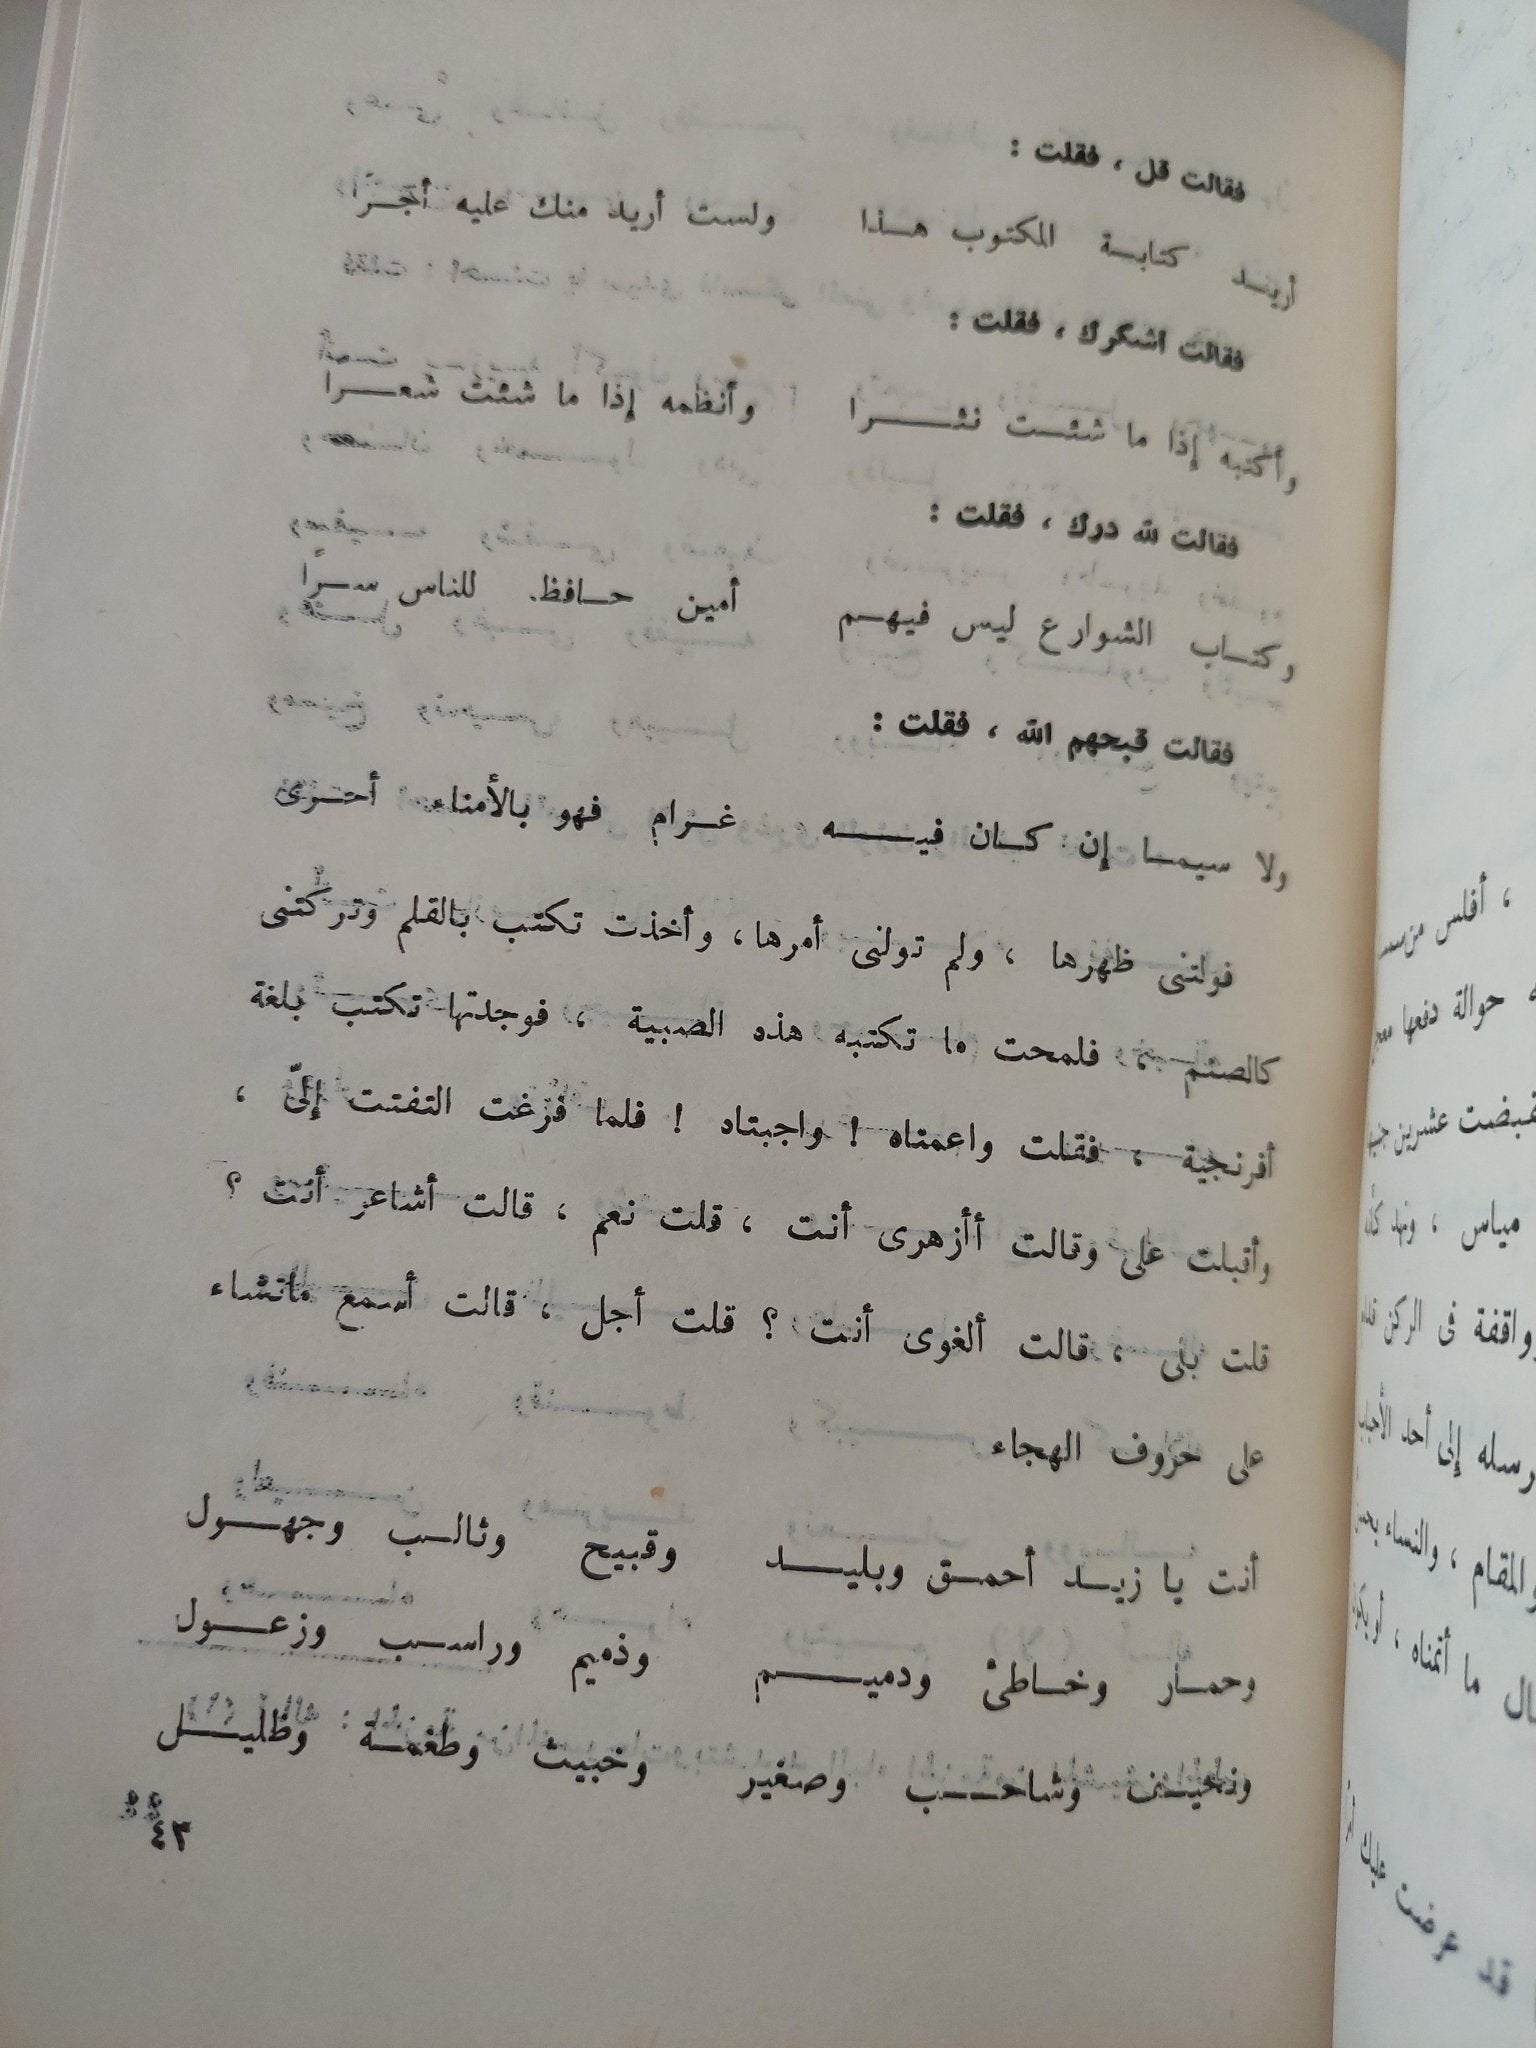 فقالت قل ، فقلت :
أريد كتابة المكتوب هذا ولست أريد منك عليه أجرا
فقالت اشكرك ، فقلت :
وأكتبه إذا ما شئت نثرا وأنظمه إذا ما شئت شعرا
فقالت لله درك ، فقلت :
وكتاب الشوارع ليس فيهم أمين حافظ للناس سرا
فقالت قبحهم الله ، فقلت :
ولا سيما إن كان فيه غرام فهو بالأمناء أحرى
فولتنى ظهرها ، ولم تولنى أمرها، وأخذت تكتب بالقلم وتركتنى
كالصنم ، فلمحت ما تكتبه هذه الصبية ، فوجدتها تكتب بلغة
أفرنجية ، فقلت واعمتاه ! واجبتاه ! فلما فرغت التفتت إلىّ ،
وأقبلت على وقالت أأزهرى أنت ، قلت نعم ، قالت أشاعر أنت ؟
قلت بلى ، قالت ألغوى أنت ؟ قلت أجل ، قالت أسمع ماتشاء
على حروف الهجاء
أنت يا زيد أحمق وبليد وقبيح وثالب وجهول
وحمار وخاطئ ودميم وذميم وراسب وزعول
وشاحب وصغير وخبيث وطغمة وظليل
٤٣
، أفلس من
حوالة دفعها
عشرين
مياس ، ونهد
واقفة فى الركن
إلى أحد الأحباب
والمقام ، والنساء
ما أتمناه ، أو
عرضت عليك